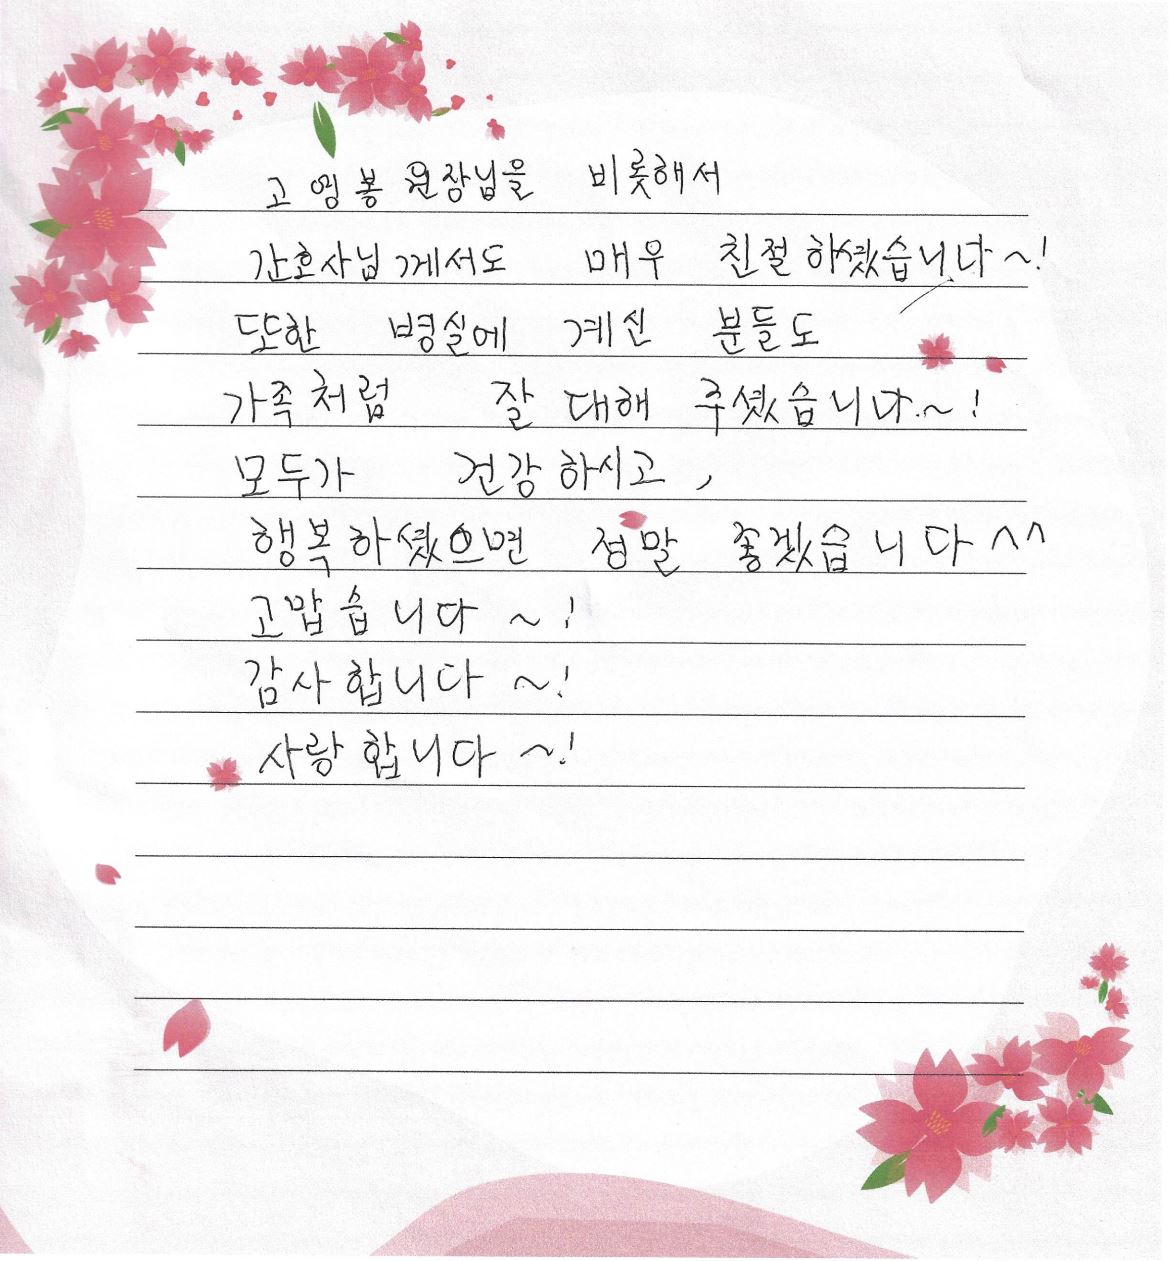 고영봉 원장님을 비롯해서
간호사님께서도 매우 친절하셨습니다~!
또한 병실에 계신 분들도
가족처럼 잘 대해 주셨습니다.~!
모두가 건강하시고,
행복하셨으면 정말 좋겠습니다^^
고맙습니다~!
감사합니다~!
사랑합니다~!